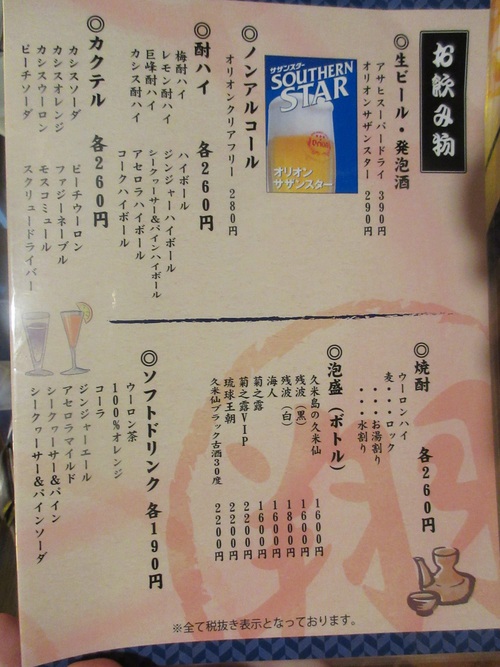 お飲み物
◎生ビール・発泡酒
アサヒスーパードライ 390円
オリオンサザンスター 290円
サザンスター
SOUTHERN STAR
Orion
オリオン
サザンスター
◎ノンアルコール
オリオンクリアフリー 280円
◎酎ハイ 各260円
梅酎ハイ
レモン酎ハイ
巨峰酎ハイ
カシス酎ハイ
ハイボール
ジンジャーハイボール
シークヮーサー&パインハイボール
アセロラハイボール
コークハイボール
◎カクテル 各260円
カシスソーダ
カシスオレンジ
カシスウーロン
ピーチソーダ
ピーチウーロン
ファジーネーブル
モスコミュール
スクリュードライバー
◎焼酎 各260円
ウーロンハイ
麦・・・ロック
・・・お湯割り
・・・水割り
◎泡盛(ボトル)
久米島の久米仙 1600円
残波(黒) 1600円
残波(白) 1800円
海人 1600円
菊之露 1600円
菊之露VIP 2200円
琉球王朝 2200円
久米仙ブラック古酒30度 2200円
◎ソフトドリンク 各190円
ウーロン茶
100%オレンジ
コーラ
ジンジャーエール
アセロラマイルド
シークヮーサー&パイン
シークヮーサー&パインソーダ
※全て税抜き表示となっております。